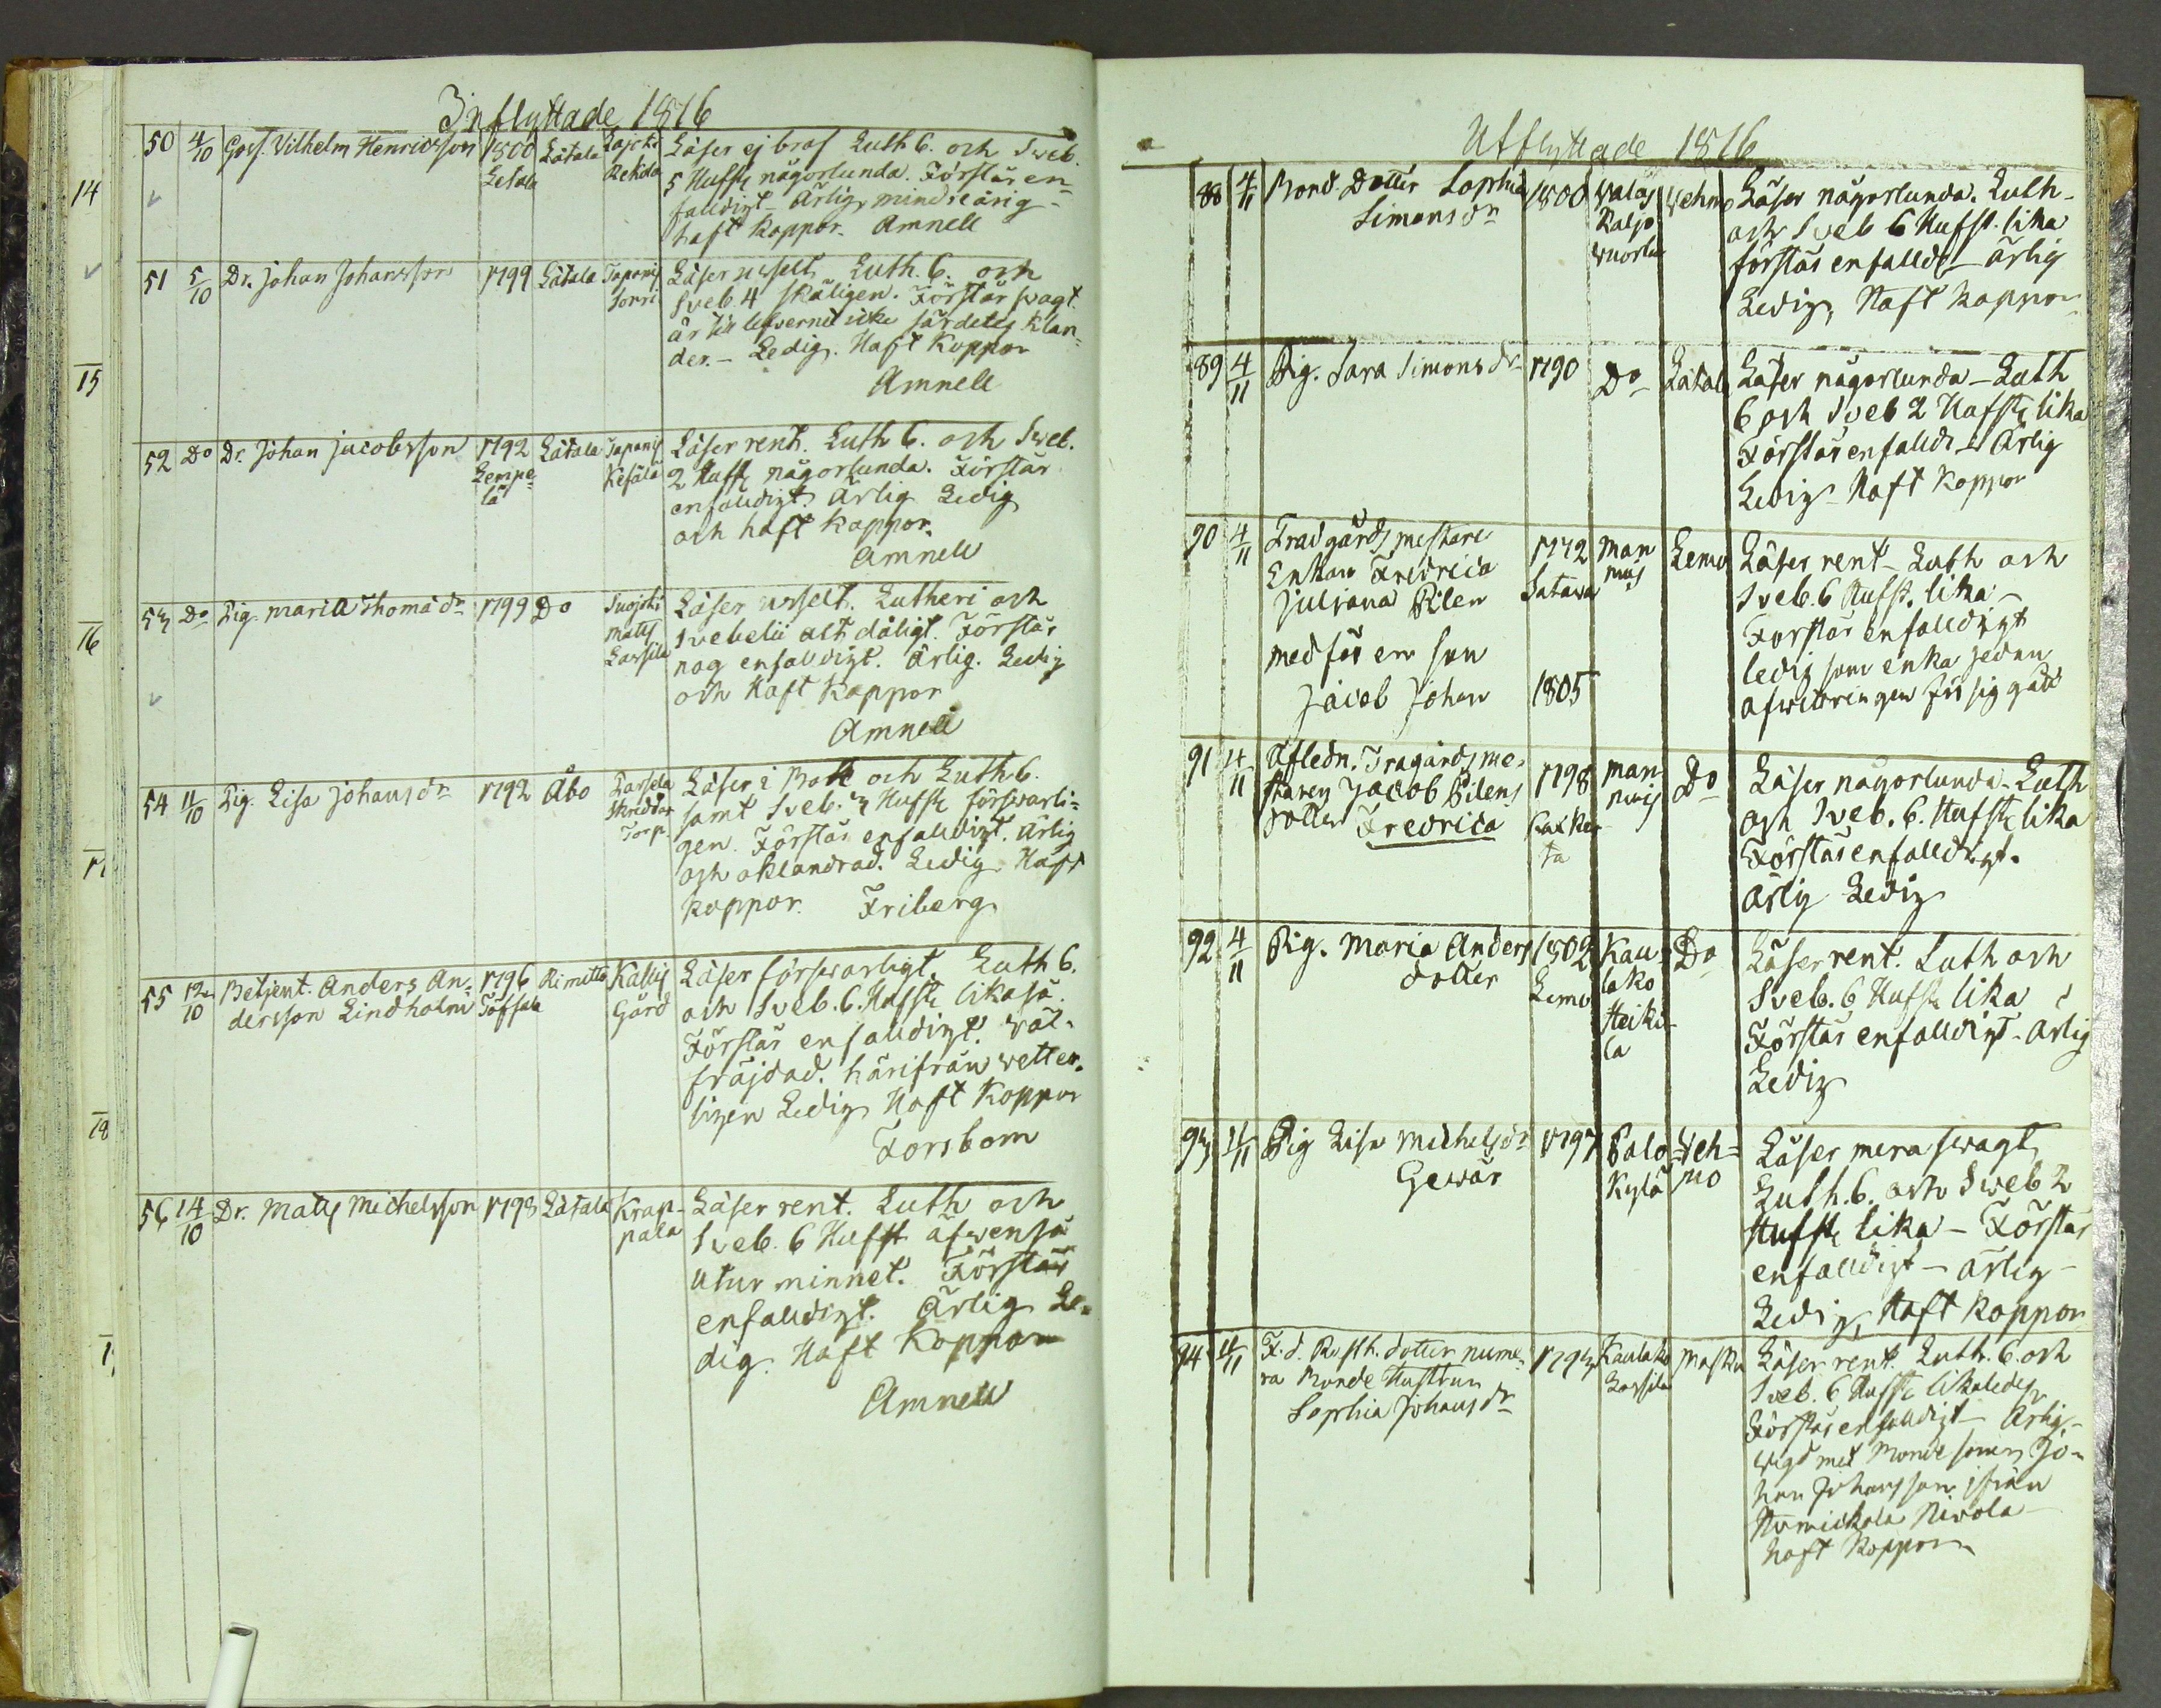 Inflyttade 1816
50 4/10 Goss. Vilhelm Henricsson 1800 Letala Låtala Lajoki Rekola
Läser ej braf Luth 6. och Sveb.
5 Hufst någorlunda. Förstår en-
falldigt - Ärlig, mindreårig -
haft Koppor. Amnell
51 5/10 Dr. Johan Johansson 1799 Låtala Tapanis Sorri
Läser usselt Luth. 6. och
Sveb 4 skäligen. Förstår svagt.
är till lefvernet icke särdeles klan-
der. - Ledig. Haft Koppor
Amnell
52 Do Dr. Johan Jacobsson 1792 Lempe-lä Låtala Tapanis Kesälä
Läser rent. Luth 6. och Sveb.
2 Hufst någorlunda. Förstår
enfalldigt. Ärlig Ledig
och haft koppor.
Amnell
53 Do Pig. Maria Thomædr 1799 Do Suojoki Matts Lassila
Läser usselt. Lutheri och
Svebelii alt dåligt. Förstår
nog enfalldigt. Ärlig. Ledig
och Haft Koppor
Amnell
54 11/10 Pig. Lisa Johansdr 1792 Åbo Skräddar Torp.
Läser i Bok och Luth 6.
samt Sveb. 3 Hufst försvarli-
gen. Förstår enfalldigt. Ärlig
och oklandrad. Ledig Haft
Koppor. Friberg
55 12/10 Betjent. Anders An-
dersson Lindholm 1796 Töfsala Rimitto Kallis Gård
Läser försvarligt. Luth 6.
och Sveb. 6. Hufst likaså.
Förstår enfalldigt. Väl-
fräjdad. härifrån vetter-
ligen Ledig Haft Koppor
Forsbom
56 14/10 Dr. Matts Michelsson 1798 Låtala Krap-pala
Läser rent. Luth och
Sveb. 6 Hufst äfvenså
utur minnet. Förstår
enfalldigt. Ärlig Le-
dig. Haft Koppor
Amnell
14
15
16
17
18
Utflyttade 1816
88 4/11 Bond. Dotter Sophia
Simonsdr 1800 Valas Raljo Vuorla Vehmo
Läser någorlunda. Luth -
och Sveb 6 Hufst. lika
förstår enfalld. - ärlig
Ledig, Haft koppor
89 4/11 Pig. Sara Simonsdr 1790 Do Låtala
Läser någorlunda - Luth
6 och Sveb 2 Hufst lika
Förstår enfalld. - Ärlig
Ledig - Haft koppor
90 4/11 Tradgårdsmestare
Enkan Fredrica
Juliana Pilen
medför en son
Jacob Johan
1742 Satava
1805
Man nais Lemo
Läser rent - Luth och
Sveb. 6 Hufst. lika -
Förstår enfalldigt
ledig som enka sedan
afvittringen för sig gådt
91 4/11 Afledn. Tragårdsme-
staren Jacob Pilens
dotter Fredrica 1798 Kaxker ta Man nais Do
Läser någorlunda - Luth
och Sveb. 6. Hufst lika
Förstår enfalldigt.
Ärlig Ledig
92 4/11 Pig. Maria Anders
dotter 1802 Lemo Kau lako Heiki la Do
Läser rent. Luth och
Sveb. 6 Hufst lika
Förstår enfalldigt - Ärlig
Ledig
93 4/11 Pig Lisa Michelsdr
Gevär 1797 Palo Kylä Veh-mo
Läser mera svagt
Luth. 6. och Sveb 2
Hufst lika - Förstår
enfalldigt - ärlig -
Ledig, Haft koppor
94 4/11 F.d. Rusth. dotter nume-
ra Bonde Hustrun
Sophia Johansdr 1793 Kaulako Lassila Masku
Läser rent. Luth. 6. och
Sveb. 6 Hufst likaledes
Förstår enfalldigt - Ärlig -
vigd med Bonde sonen Jo-
han Johansson ifrån
Nivola
haft Koppor